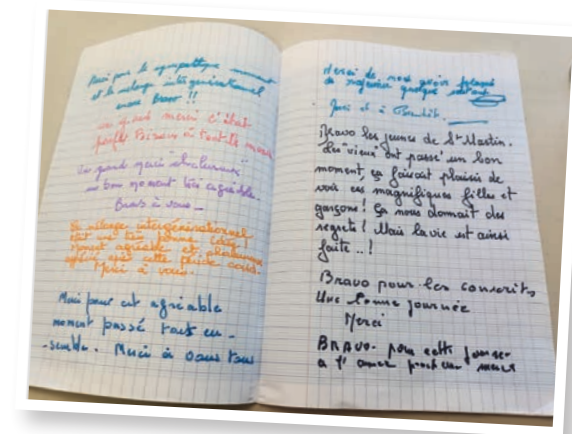 Merci pour le sympathique moment
et le mélange intergénérationnel
encore bravo !!
un grand merci c'était
parfait Bisous à tout le monde
un grand merci chaleureux
un bon moment très agréable.
Bravo à vous _
Le mélange intergénérationnel
est une très bonne idée
moment agréable et chaleureux
après cette période covid.
Merci à vous.
Merci pour cet agréable
moment passé tous en-
-semble. Merci à vous tous
Merci de nous avoir
quelques
Bravo les jeunes de St Martin.
Les "vieux" ont passé un bon
moment, ça faisait plaisir de
voir ces magnifiques filles et
garçons ! Ça nous donnait des
regrets ! Mais la vie est ainsi
faite..!
Bravo pour les conscrits
Une bonne journée
Merci
BRAVO pour cette journée
a l'année prochaine